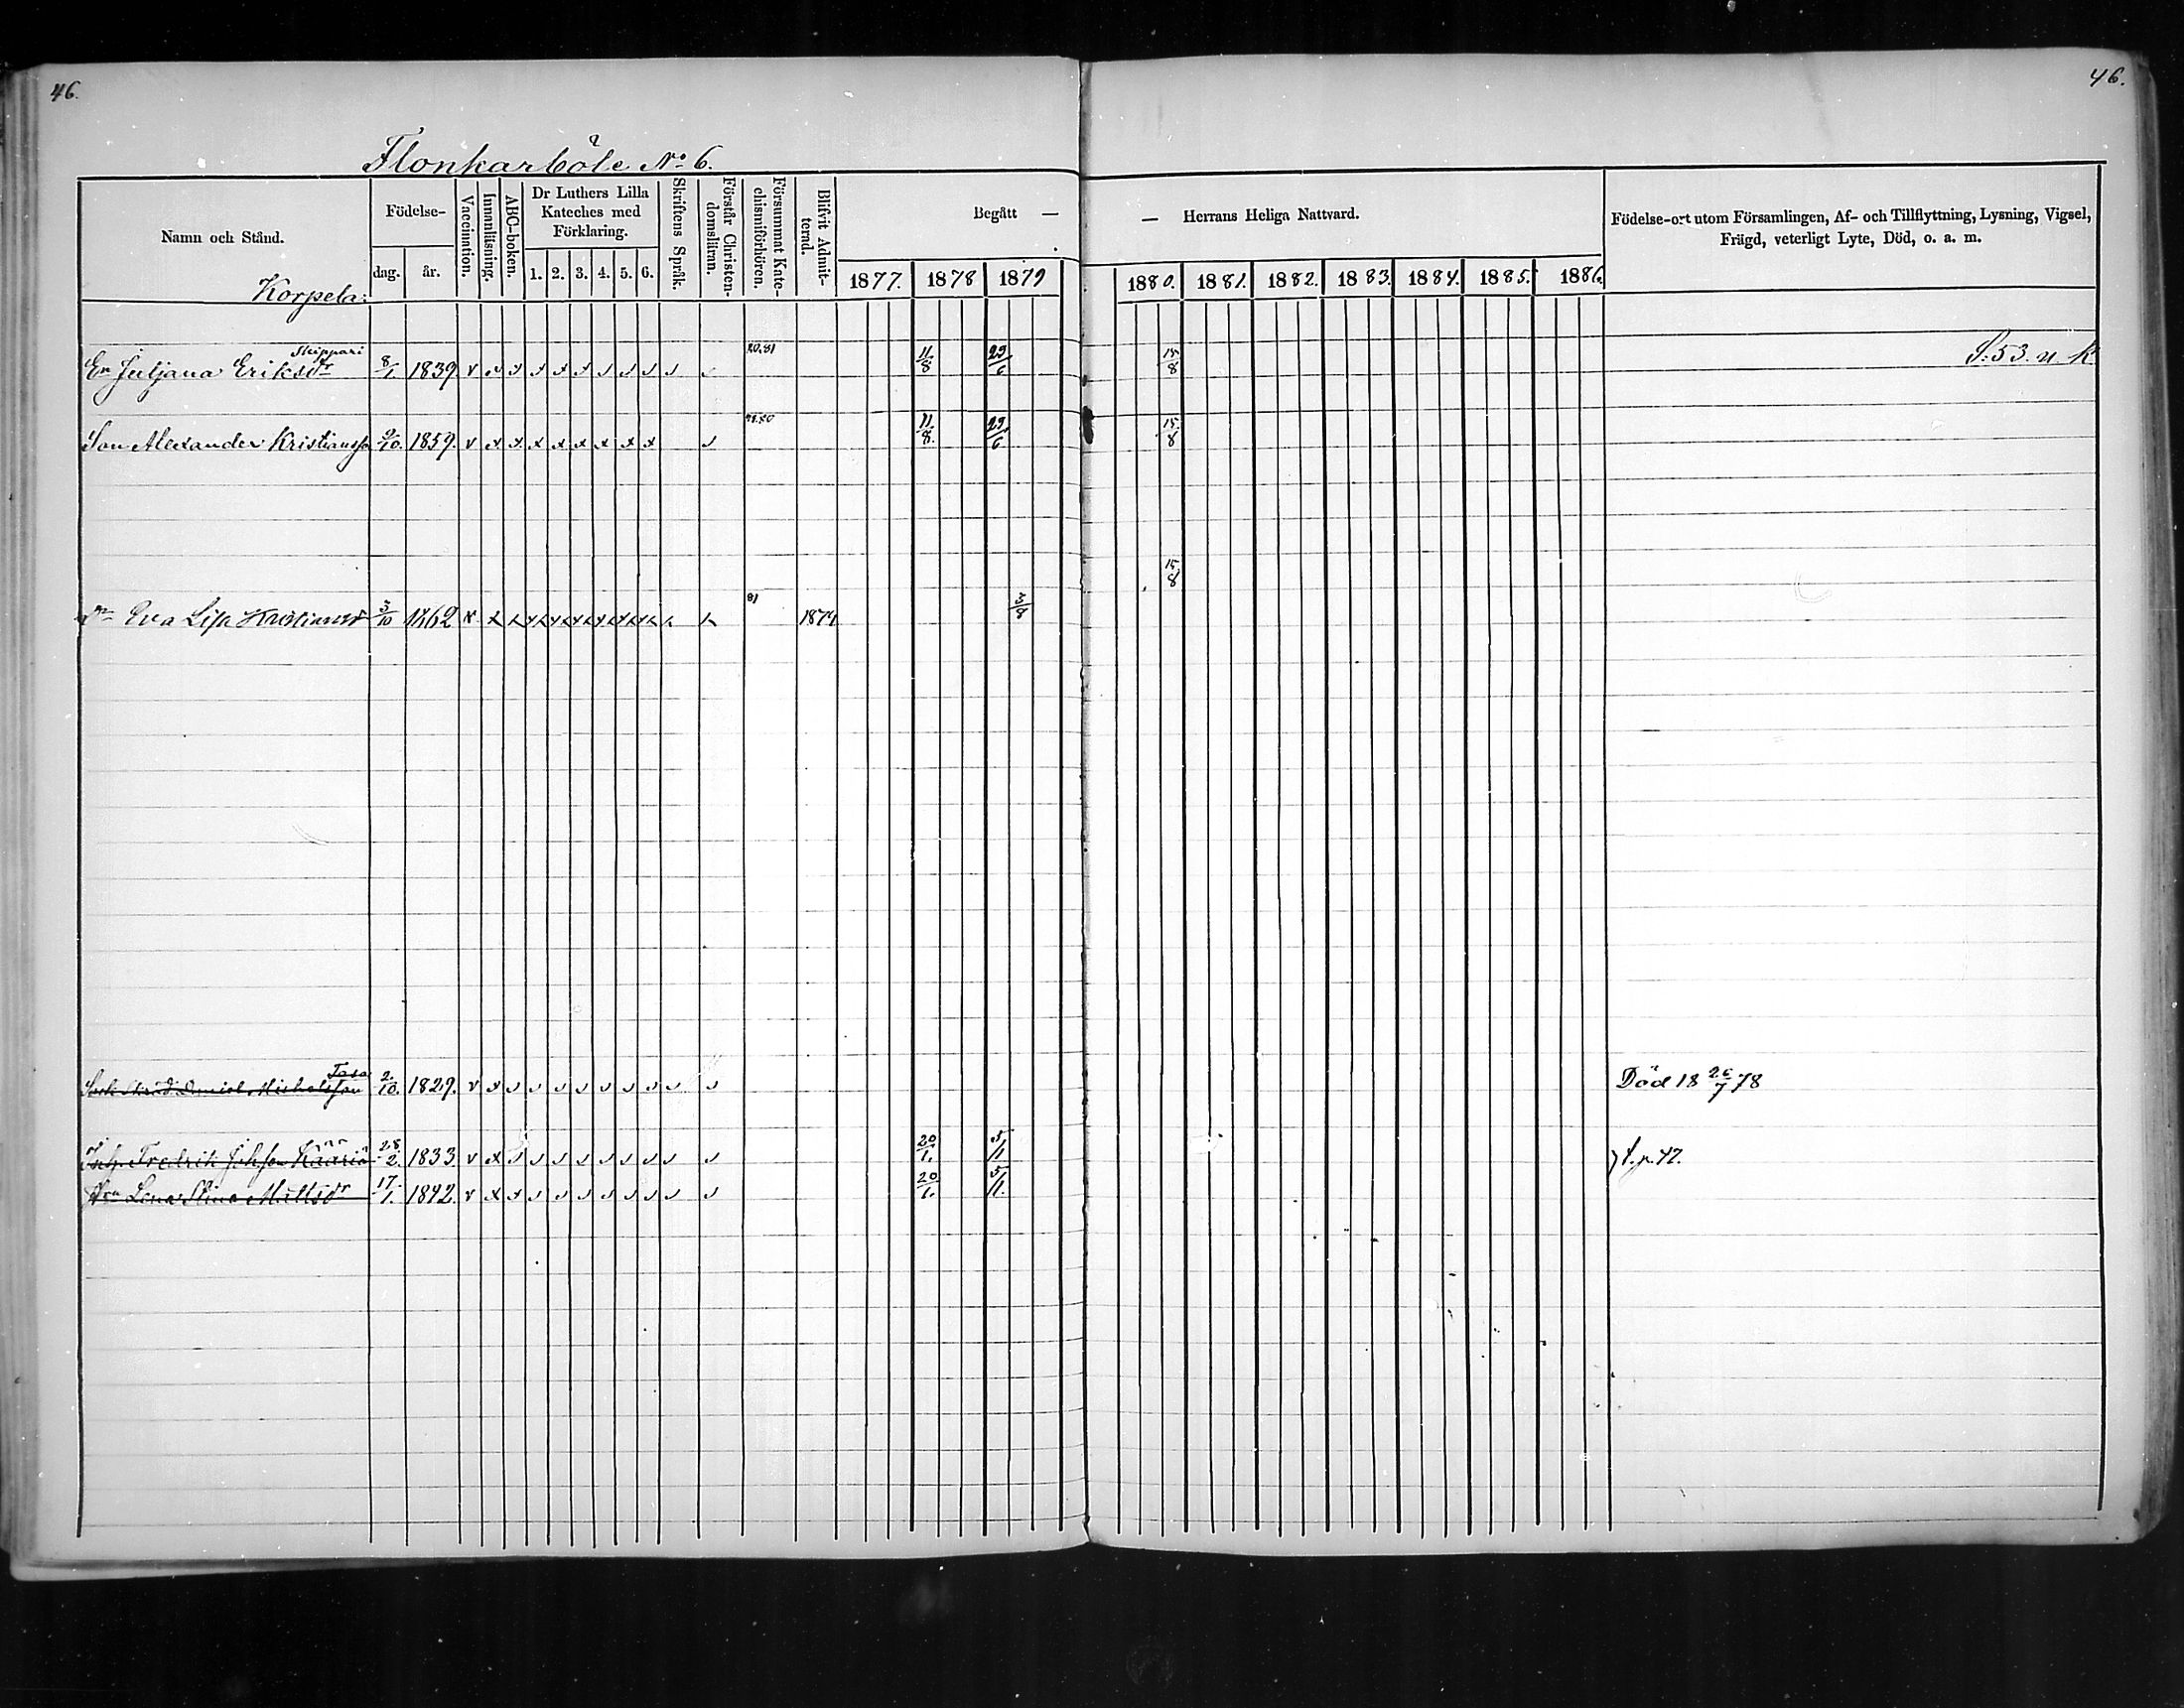 46.
46.
Flonkarböle No 6.
Namn och Stånd.
Födelse-
dag.
år.
Vaccination.
Innanläsning.
ABC-boken.
Dr Luthers Lilla
Kateches med
Förklaring.
1. 2. 3. 4. 5. 6.
Skriftens Språk.
Förstår Christen-
domsläran.
Försummat Kate-
chismiförhören.
Blifvit Admit-
terad.
Begått —
— Herrans Heliga Nattvard.
1877. 1878 1879 1880. 1881. 1882. 1883. 1884. 1885. 1886.
Födelse-ort utom Församlingen, Af- och Tillflyttning, Lysning, Vigsel,
Frägd, veterligt Lyte, Död, o. a. m.
Korpela:
Skeppari
En Juljana Eriksdr 8/1. 1839. 20,81 11/8 29/6 15/8 S. 53. n. K
Son Alexander Kristiansson 2/10. 1859. 11/8. 29/6 15/8
15/8
Dr Eva Lisa Kristiansdr 3/10 1862 81 1879 3/8
Tasa
Daniel Michelsson 2/10. 1829. Död 18 26/7 78
Inh. Fredrik Johsson Kääriä 28/2. 1833 20/1. 5/1
Hu Lena Stina Mattsdr 17/1. 1842. 20/1. 5/1.